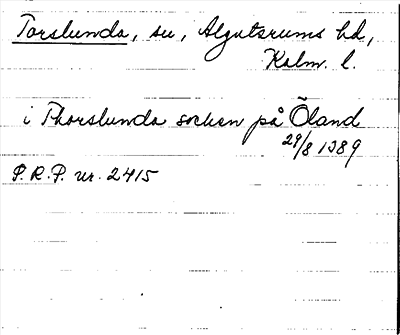 Torslunda, sn, Algutsrums hd,
Kalm. l.
i Thorslunda socken på Öland
29/8 1389
P.R.P. nr. 2415